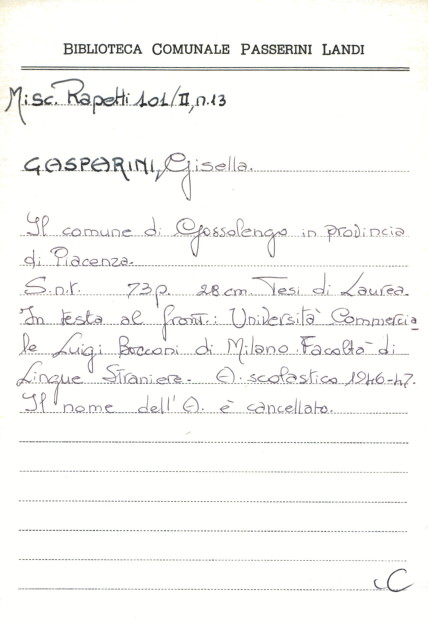 BIBLIOTECA COMUNALE PASSERINI LANDI
Misc. Rapetti 101/II, n.13
GASPARINI, Gisella.
Il comune di Gossolengo in provincia
di Piacenza.
S.n.t. 73p. 28cm. Tesi di Laurea.
In testa al front.: Università Commercia
le Luigi Bocconi di Milano. Facoltà di
Lingue Straniere. A. scolastico 1946-47.
Il nome dell'A. è cancellato.
C